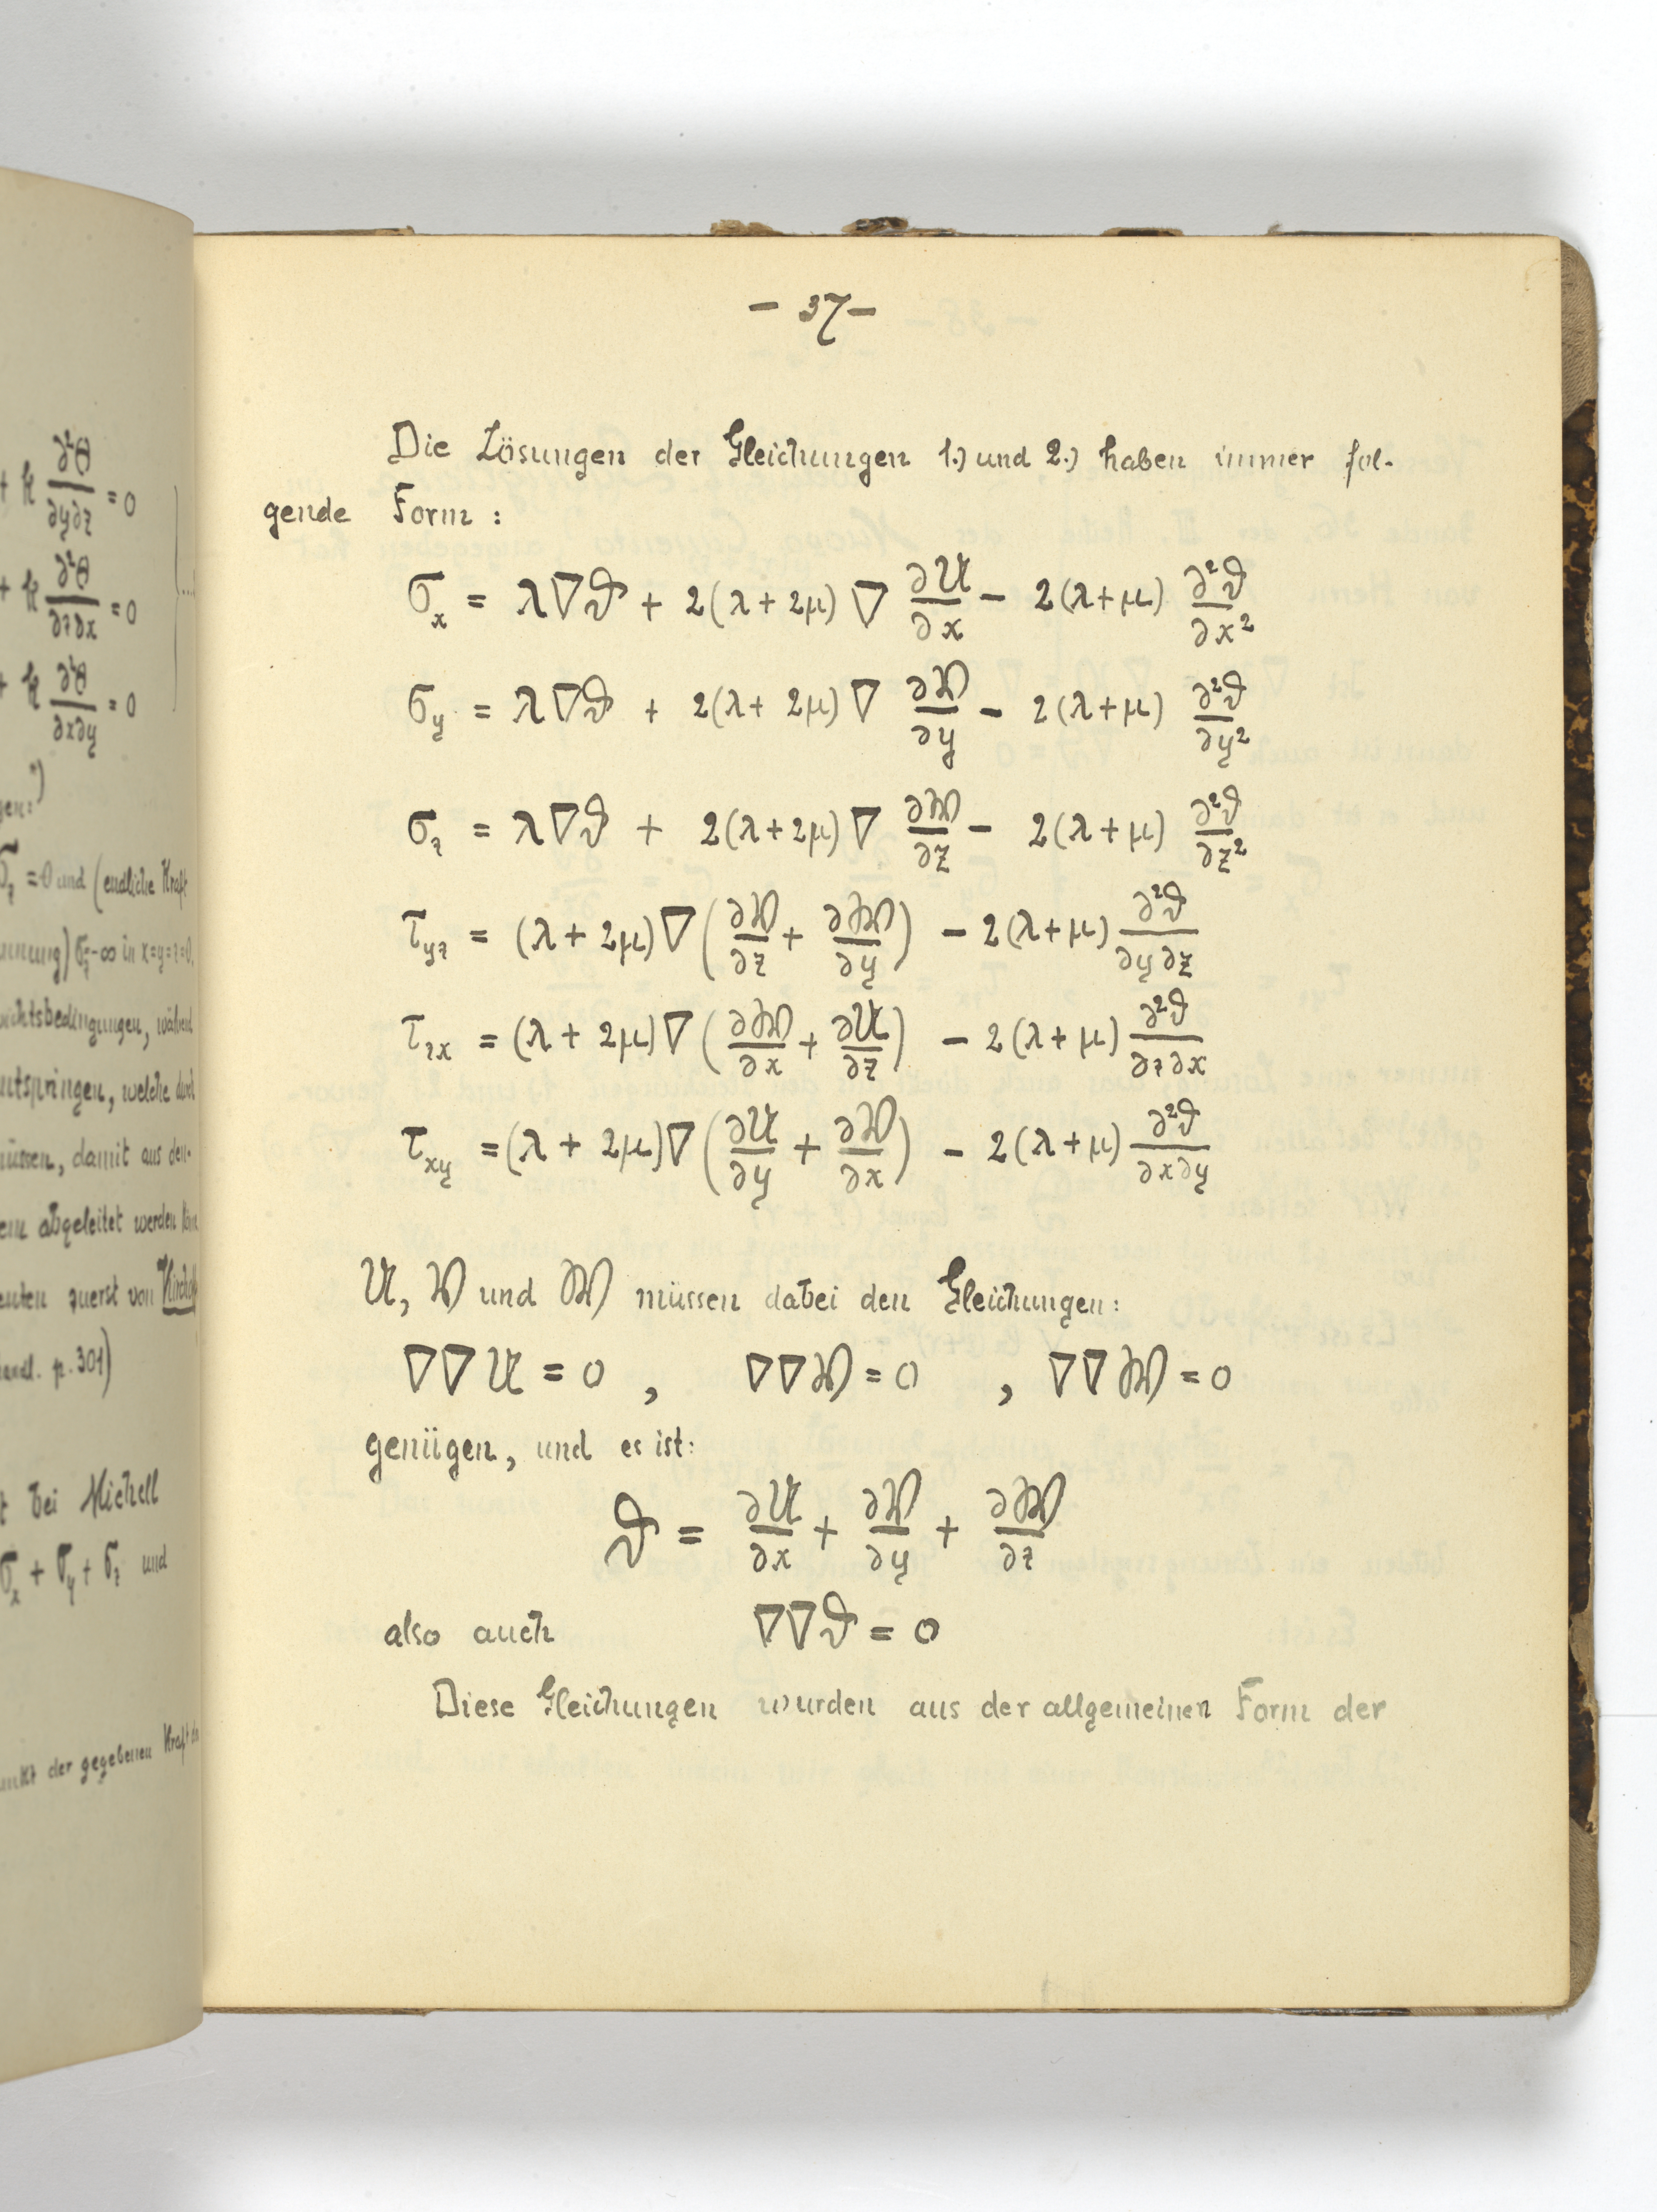 ∂²θ
+ k ∂y∂z = 0
∂²θ
+ k ∂z∂x = 0
∂²θ
+ k ∂x∂y = 0
σz = 0 und (endliche Kraft
σz = -∞ in x=y=z=0.
während
welche durch
müssen, damit aus den-
abgeleitet werden
zuerst von Kirchhoff
p. 301)
bei Michell
σx + σy + σz und
der gegebenen Kraft
– 37 –
Die Lösungen der Gleichungen 1.) und 2.) haben immer fol-
gende Form:
σx = λ∇ϑ + 2(λ+2μ) ∇ ∂U/∂x – 2(λ+μ) ∂²ϑ/∂x²
σy = λ∇ϑ + 2(λ+2μ) ∇ ∂V/∂y – 2(λ+μ) ∂²ϑ/∂y²
σz = λ∇ϑ + 2(λ+2μ) ∇ ∂W/∂z – 2(λ+μ) ∂²ϑ/∂z²
τyz = (λ+2μ) ∇ (∂V/∂z + ∂W/∂y) – 2(λ+μ) ∂²ϑ/∂y∂z
τzx = (λ+2μ) ∇ (∂W/∂x + ∂U/∂z) – 2(λ+μ) ∂²ϑ/∂z∂x
τxy = (λ+2μ) ∇ (∂U/∂y + ∂V/∂x) – 2(λ+μ) ∂²ϑ/∂x∂y
U, V und W müssen dabei den Gleichungen:
∇∇U = 0 , ∇∇V = 0 , ∇∇W = 0
genügen, und es ist:
ϑ = ∂U/∂x + ∂V/∂y + ∂W/∂z
also auch ∇∇ϑ = 0
Diese Gleichungen wurden aus der allgemeinen Form der